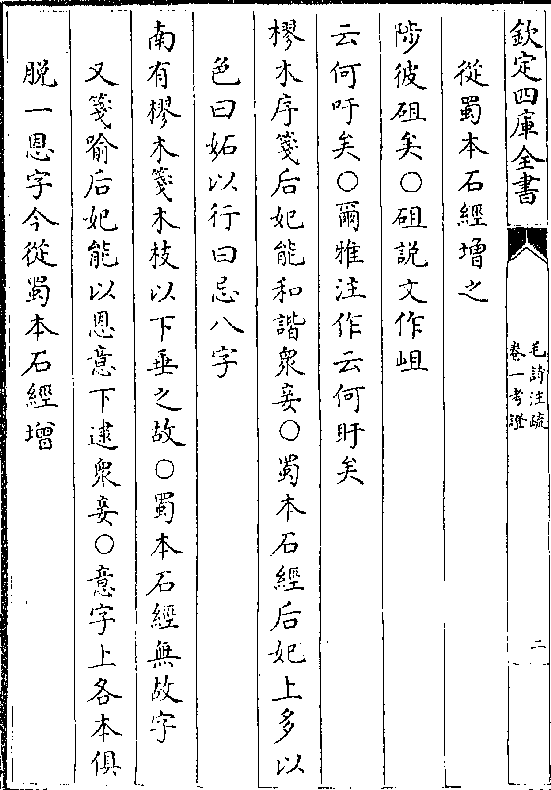 欽定四庫全書
毛詩注疏
卷一考證
二
從蜀本石經增之
陟彼砠矣○砠說文作岨
云何吁矣○爾雅注作云何盱矣
樛木序箋后妃能和諧衆妾○蜀本石經后妃上多以
色曰妬以行曰忌八字
南有樛木箋木枝以下垂之故○蜀本石經無故字
又箋喻后妃能以恩意下逮衆妾○意字上各本俱
脱一恩字今從蜀本石經增